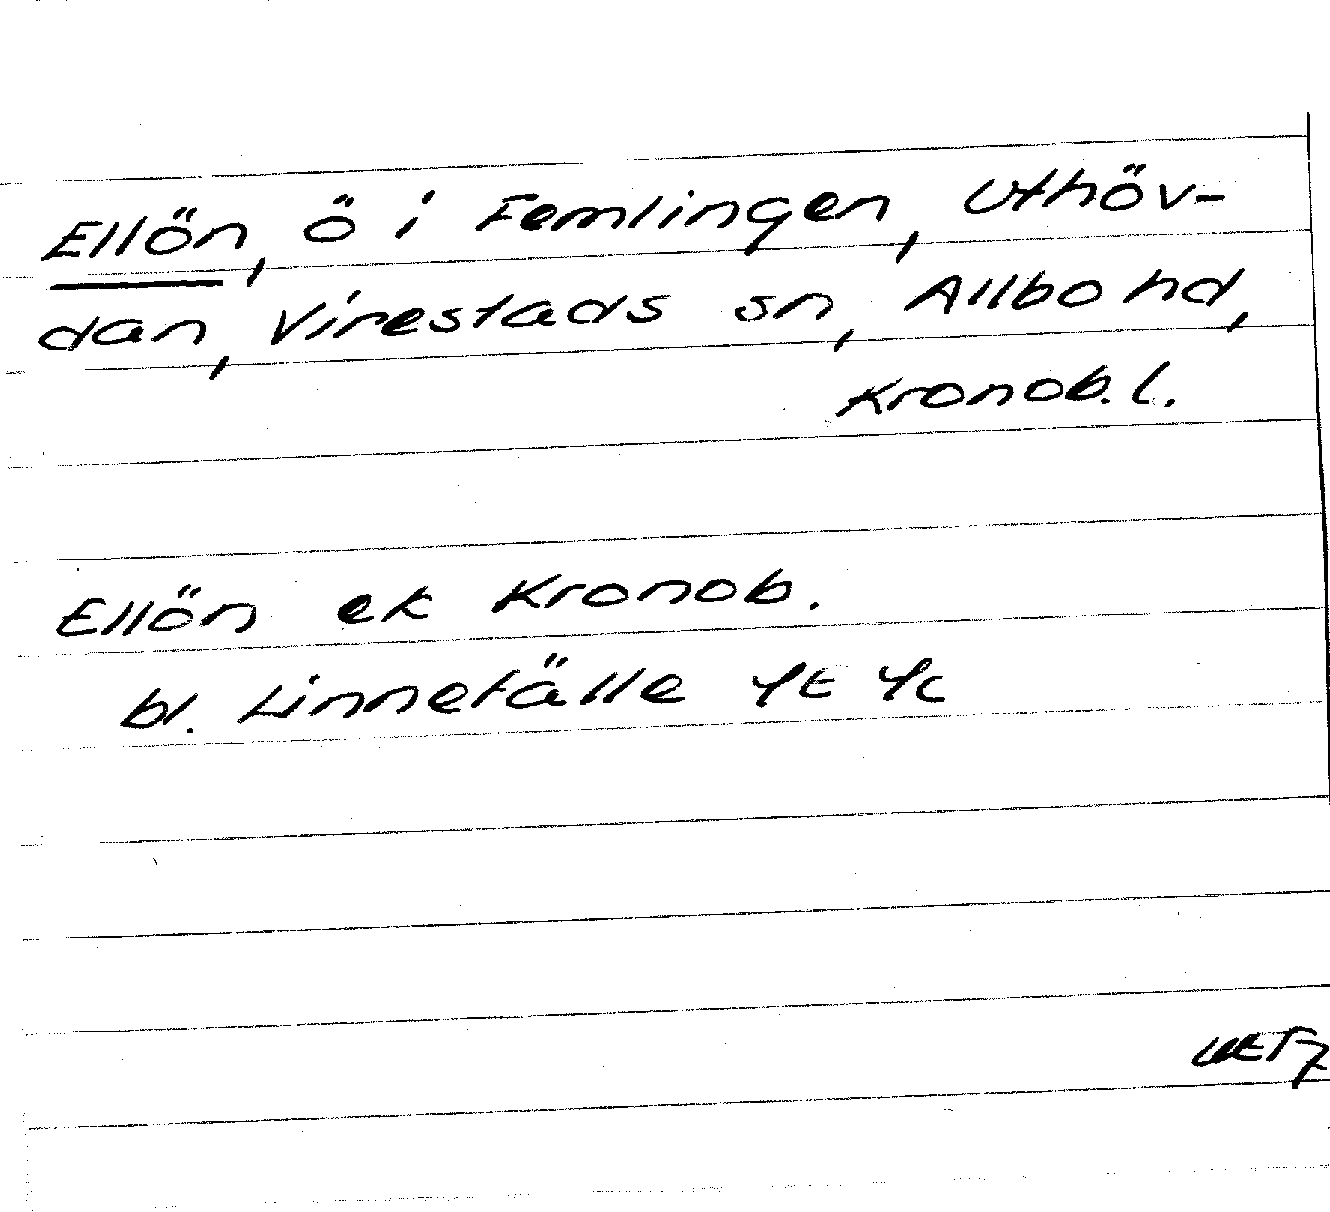 Ellön, ö i Femlingen, Uthöv-
dan, Virestads sn, Allbo hd,
Kronob. l.
Ellön ek Kronob.
bl. Linnefälle